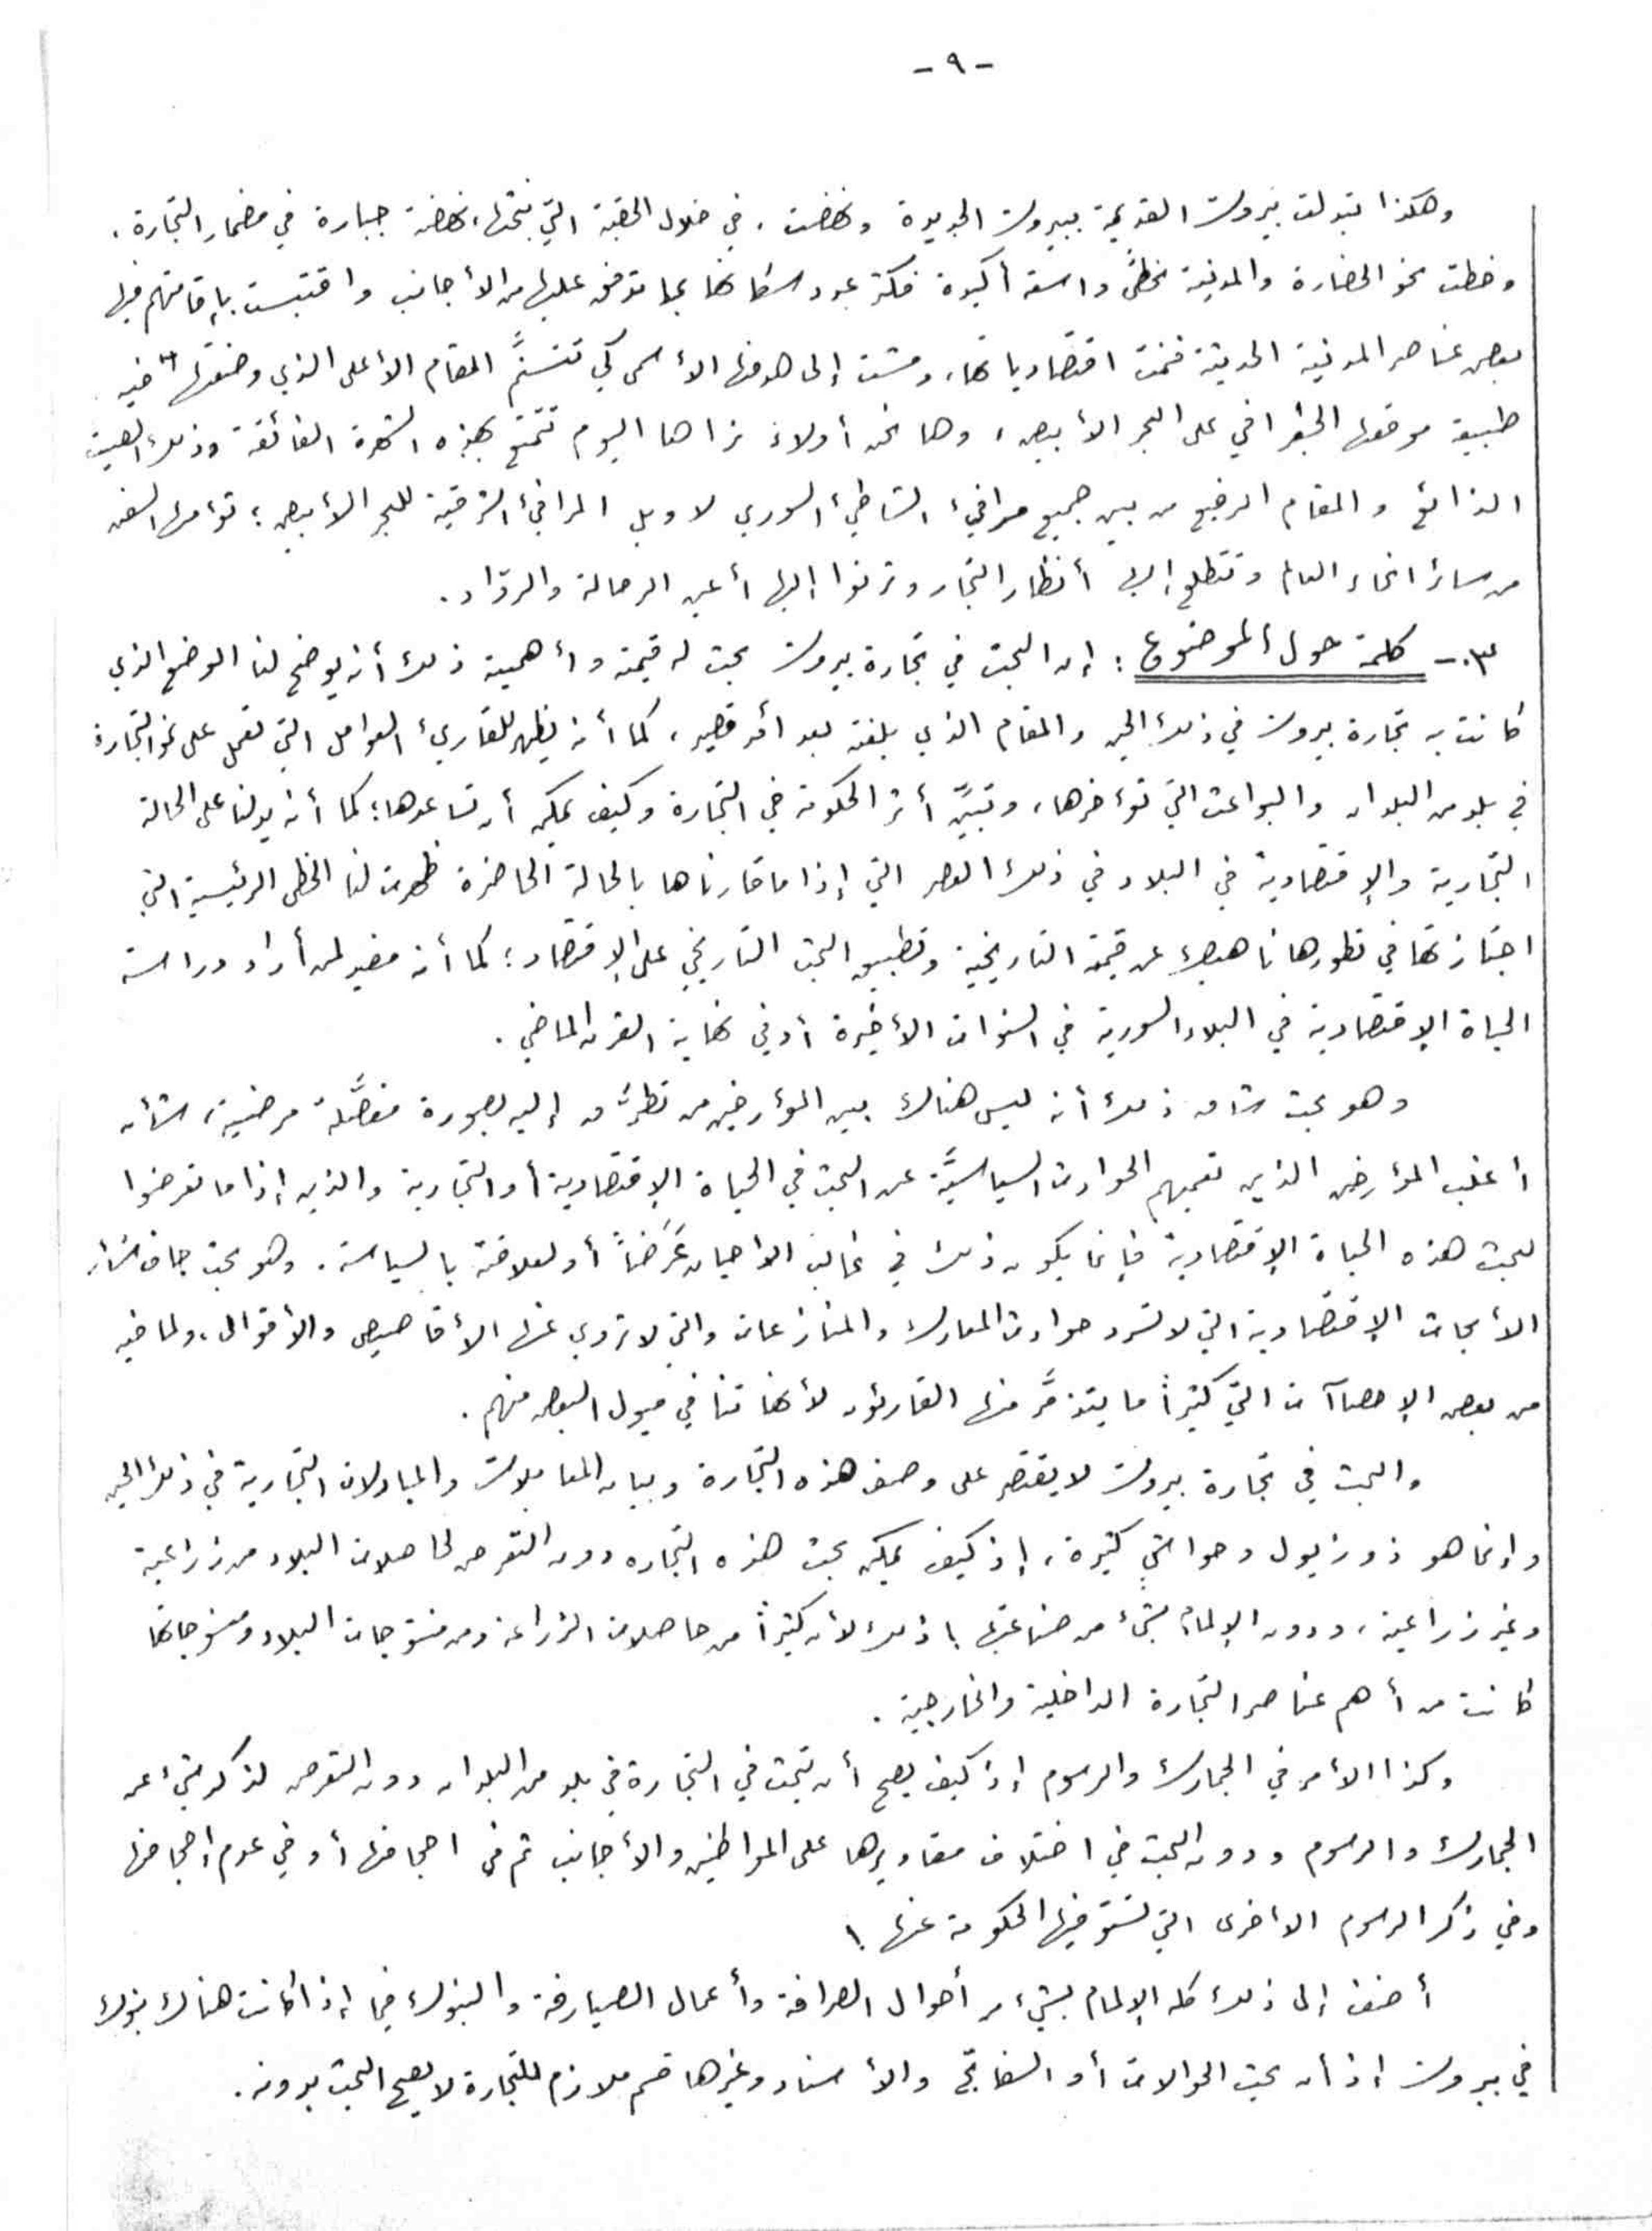 - ٩ -
وهكذا تبدلت بيروت القديمة ببيروت الجديدة ونهضت، في خلال الحقبة التي نبحثها، نهضة جبارة في مضمار التجارة،
وخطت نحو الحضارة والمدنية بخطىً واسعة أكيدة فكثر عدد سكانها بما توفق عليها من الأجانب واقتبست بإقامتهم فيها
بعض عناصر المدنية الحديثة فنمت اقتصادياتها، ومشت إلى هدفها الأسمى كي تتسنَّم المقام الأعلى الذي وضعتها فيه
طبيعة موقعها الجغرافي على البحر الأبيض، وها نحن أولاء نراها اليوم تتمتع بهذه الشهرة الفائقة وذلك الصيت
الذائع والمقام الرفيع من بين جميع مرافئ الشاطئ السوري لا وبل المرافئ الشرقية للبحر الأبيض؛ تؤمها السفن
من سائر انحاء العالم وتتطلع إليها أنظار التجار وترنوا إليها أعين الرحالة والروّاد.
٣.- كلمة حول الموضوع: إن البحث في تجارة بيروت بحث له قيمته وأهميته ذلك أنه يوضح لنا الوضع الذي
كانت به تجارة بيروت في ذلك الحين والمقام الذي بلغته بعد أمد قصير، كما أنه يظهر للقارئ العوامل التي تعمل على نمو التجارة
في بلد من البلدان والبواعث التي تؤخرها، وتبيّن أثر الحكومة في التجارة وكيف يمكن أن تساعدها؛ كما أنه يدلنا على الحالة
التجارية والإقتصادية في البلاد في ذلك العصر التي إذا ما قارناها بالحالة الحاضرة ظهرت لنا الخطى الرئيسية التي
اجتازتها في تطورها ناهيك عن قيمته التاريخية وتطبيق البحث التاريخي على الإقتصاد؛ كما أنه مفيد لمن أراد دراسة
الحياة الإقتصادية في البلاد السورية في السنوات الأخيرة أو في نهاية القرن الماضي.
وهو بحث شاق ذلك أنه ليس هناك بين المؤرخين من تطرَّق إليه بصورة مفصَّلة مرضية، شأن
اغلب المؤرخين الذين تعميهم الحوادث السياسيَّة عن البحث في الحياة الإقتصادية أو التجارية والذين إذا ما تعرضوا
لبحث هذه الحياة الإقتصادية فإنما يكون ذلك في غالب الاحيان عَرَضاً أو لعلاقته بالسياسة. وهو بحث جاف شأن
الأبحاث الإقتصادية التي لا تسرد حوادث المعارك والمنازعات والتي لا تروي عنها الأقاصيص والأقوال، ولما فيه
من بعض الإحصاآت التي كثيراً ما يتذمَّر منها القارئون لأنها تنافي ميول البعض منهم.
والبحث في تجارة بيروت لا يقتصر على وصف هذه التجارة وبيان المعاملات والمبادلات التجارية في ذلك الحين
وإنما هو ذو ذيول وحواشٍ كثيرة، إذ كيف يمكن بحث هذه التجاره دون التعرض لحاصلات البلاد من زراعية
وغير زراعية، ودون الإلمام بشئ من صناعتها! ذلك لأن كثيراً من حاصلات الزراعة ومن منتوجات البلاد ومنسوجاتها
كانت من أهم عناصر التجارة الداخلية والخارجية.
وكذا الأمر في الجمارك والرسوم إذ كيف يصح أن نبحث في التجارة في بلد من البلدان دون التعرض لذكر شيء عن
الجمارك والرسوم ودون البحث في اختلاف مقاديرها على المواطنين والأجانب ثم في اجحافها أو في عدم إجحافها
وفي ذكر الرسوم الاخرى التي تستوفيها الحكومة عنها!
أضف إلى ذلك كله الإلمام بشيء من أحوال الصرافة وأعمال الصيارفة والبنوك فيما إذا كانت هناك بنوك
في بيروت إذ أن بحث الحوالات أو السفاتج والأسناد وغيرها قسم ملازم للتجارة لا يصح البحث بدونه.